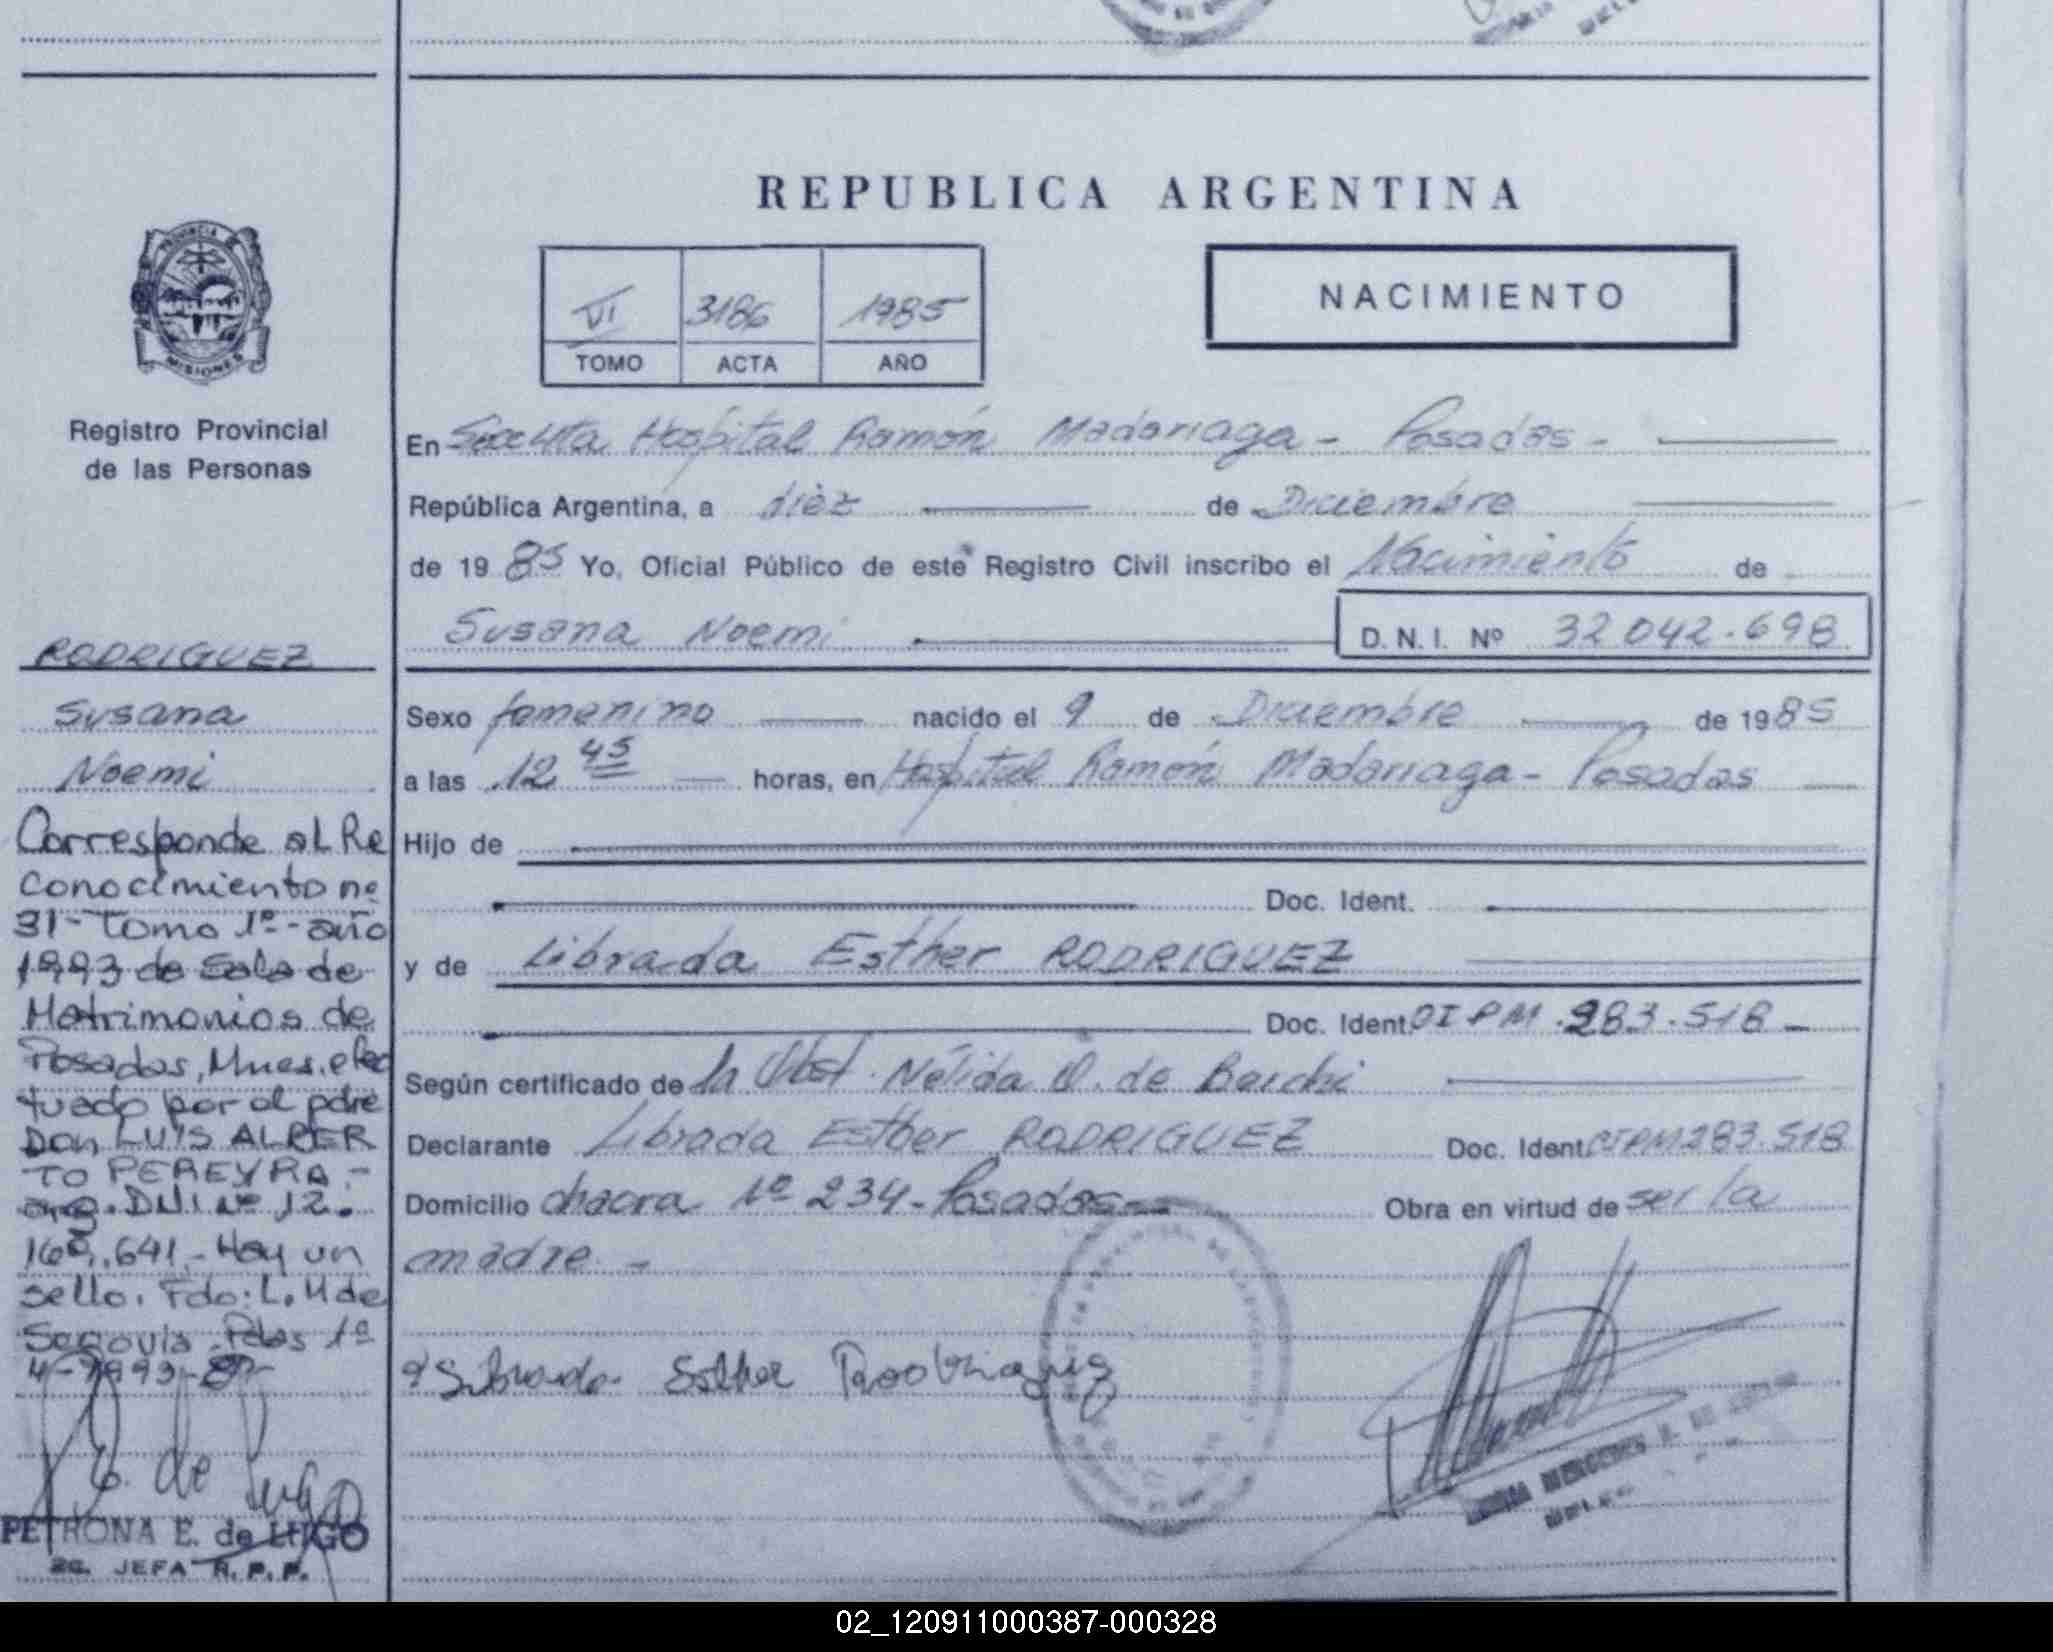 REPUBLICA ARGENTINA
PROVINCIA DE
MISIONES
Registro Provincial
de las Personas
VI 3186 1985
TOMO ACTA AÑO
NACIMIENTO
En Hospital Ramón Madariaga - Posadas -
República Argentina, a diez de Diciembre
de 19 85 Yo, Oficial Público de este Registro Civil inscribo el Nacimiento de
Susana Noemi D.N.I. Nº 32 042.698
Sexo femenino nacido el 9 de Diciembre de 1985
a las 12 45 horas, en Hospital Ramón Madariaga - Posadas
Hijo de
Doc. Ident.
y de Librada Esther RODRIGUEZ
Doc. Ident. CIPM 283.518 -
Según certificado de la Obst. Nélida O. de
Declarante Librada Esther RODRIGUEZ Doc. Ident. CIPM 283.518
Domicilio chacra Nº 234 - Posadas Obra en virtud de ser la
madre -
Librada Esther Rodriguez
RODRIGUEZ
Susana
Noemi
Corresponde al Re
conocimiento nº
31 - Tomo 1º - año
1993 de Sala de
Matrimonios de
Posadas, Mnes. efec
tuado por el pdre
Don LUIS ALBER
TO PEREYRA -
arg. DNI Nº 12.
160.641 - Hay un
sello. Fdo: L. M de
Segovia - Pdas 1º
4-1993-
E. de Lugo
PETRONA E. de LUGO
JEFA R.P.P.
MERCEDES
02_120911000387-000328